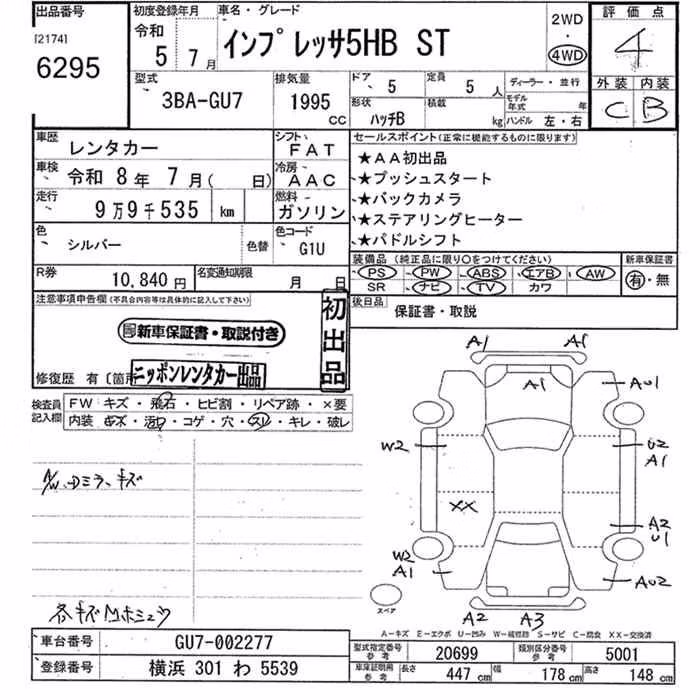 出品番号
[2174]
6295
初度登録年月
令和
5 7月
車名・グレード
インプレッサ5HB ST
2WD
・
4WD
評価点
4
外装 内装
C B
型式
3BA-GU7
排気量
1995
cc
ドア 5
定員 5 人
形状
ハッチB
積載
kg
ディーラー・並行
モデル年式 年
ハンドル 左・右
車歴
レンタカー
シフト
FAT
車検
令和 8年 7月( 日)
冷房
AAC
走行
9万9千535 km
燃料
ガソリン
色
シルバー
色替
色コード
G1U
R券
10,840 円
名変通知期限
月 日
セールスポイント(正常に機能するものに限ります)
★AA初出品
★プッシュスタート
★バックカメラ
★ステアリングヒーター
★パドルシフト
装備品 (純正品に限り○をつけてください)
PS PW ABS エアB AW
SR ナビ TV カワ
新車保証書
有・無
後日品
保証書・取説
注意事項申告欄(不具合内容等は具体的に記入して下さい)
新車保証書・取説付き
初出品
ニッポンレンタカー出品
修復歴 有 (箇所
検査員
記入欄
FW キズ・飛石・ヒビ割・リペア跡・×要
内装 キズ・汚れ・コゲ・穴・スレ・キレ・破レ
A1 A1
A1
AU1
W2
U2
A1
XX
A2
U1
W2
A1
AU2
A2 A3
スペア
A―キズ E―エクボ U―凹み W―補修跡 S―サビ C―腐食 XX―交換済
車台番号
GU7-002277
登録番号
横浜 301 わ 5539
型式指定番号
参考
20699
類別区分番号
参考
5001
車庫証明用
参考
長さ 447 cm
幅 178 cm
高さ 148 cm